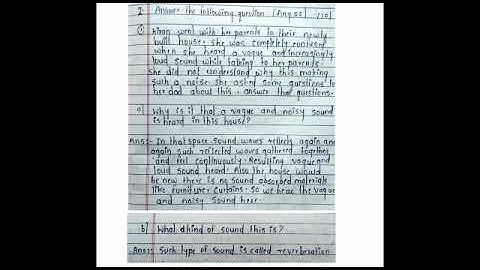 2. Answer the following question (Any 05) (10)
① Kiran went with her parents to their newly
built house. She was completely confused
when she heard a vague and increasingly
loud sound while talking to her parents.
she did not understand why this making
such a noise. she asked some questions to
her dad about this. answer that questions.
a) Why is it that a vague and noisy sound
is heard in this house?
Ans:- In that space sound waves reflects again and
again such reflected waves gathered together
and feel continuously. Resulting vague and
loud sound heard. Also the house would
be new there is no sound absorbed materials
like furniture, curtains. So we hear the vague
and noisy sound here.
b) What a kind of sound this is?
Ans:- Such type of sound is called reverberation